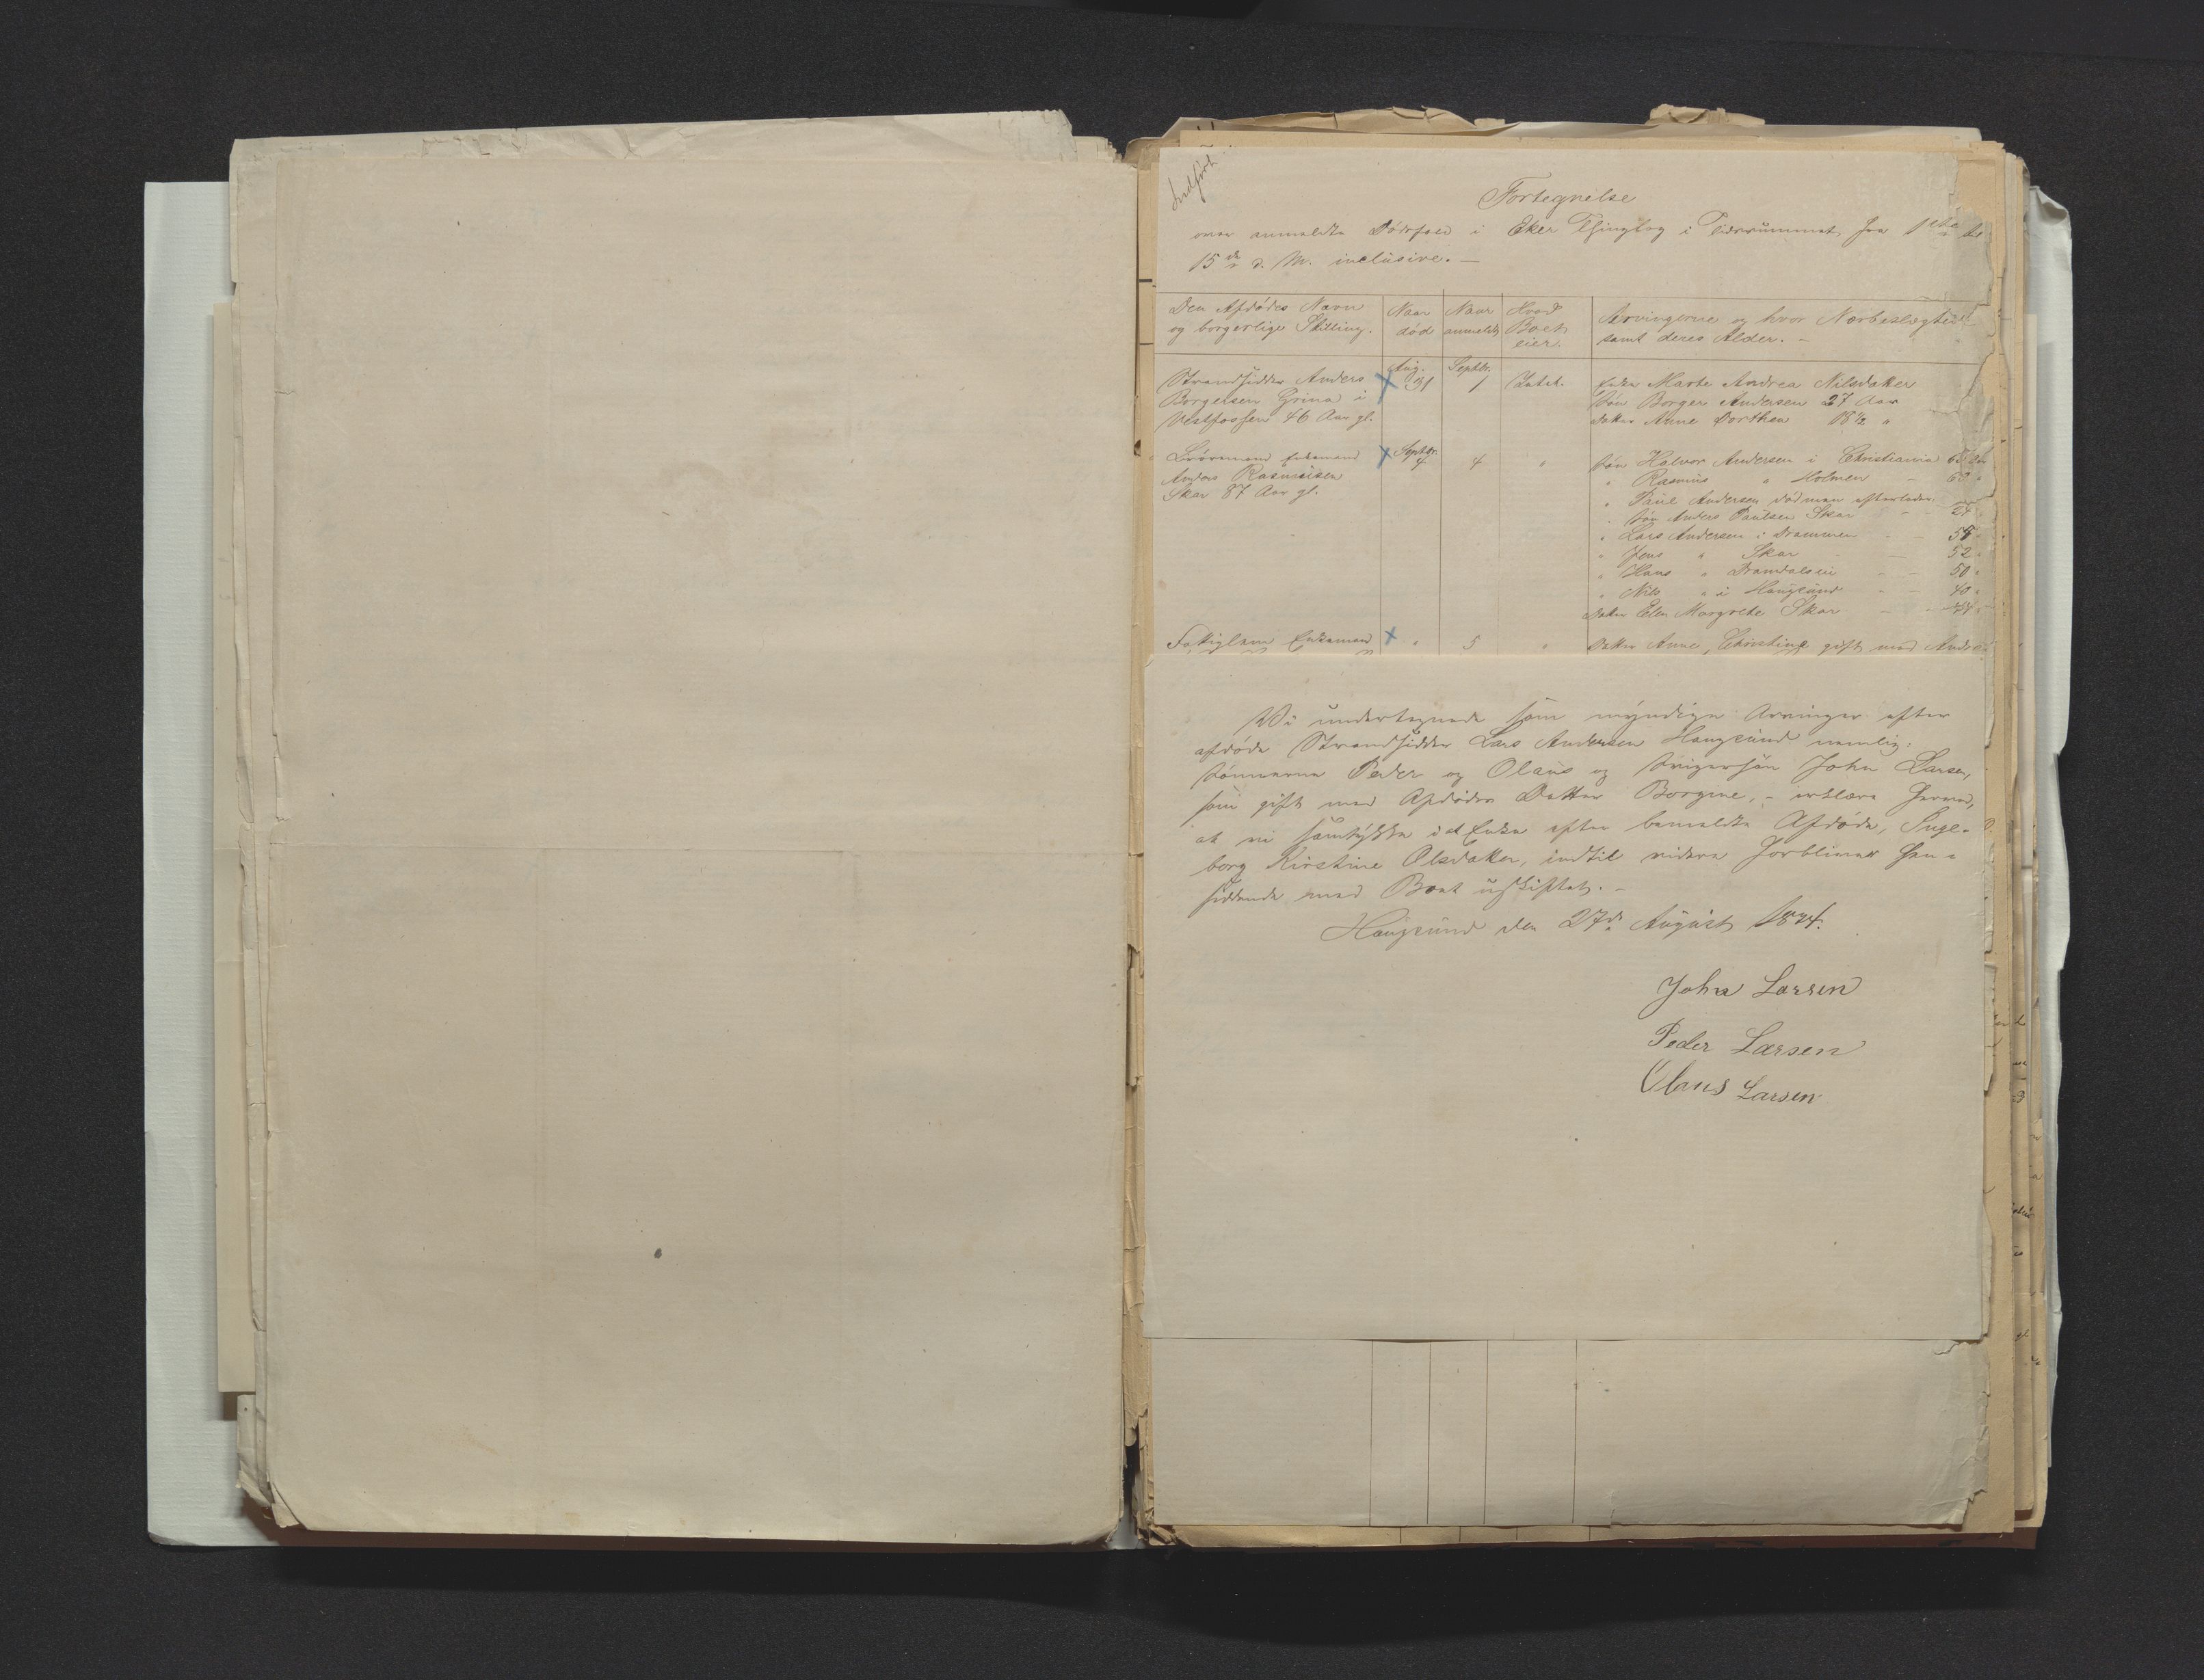 Indført
Fortegnelse
over anmeldte Dødsfald i Eker Thinglag i Tidsrummet fra 1ste til
15de d. M. inclusive. —
Den Afdødes Navn
og borgerlige Stilling.
Naar
død
Naar
anmeldt
Hvad
Boet
eier.
Arvingerne og hvor Nærbeslægtede
samt deres Alder. —
Strandsidder Anders
Borgersen Grina i
Vestfossen 46 Aar gl.
Aug.
31
Septbr.
1
Intet.
Enke Marte Andrea Nilsdatter
Søn Borger Andersen 27 Aar
Datter Anne Dorthea 18½ "
Enkemand
Anders Rasmusen
Skar 87 Aar gl.
Septbr.
4
4
"
Søn Halvor Andersen i Christiania
" Rasmus " Holmen - 60 "
" Paul Andersen død men efterlader
Søn Anders Paulsen Skar - - 24 "
" Lars Andersen i Drammen - -
" Jens " Skar - - 52 "
" Hans " - - 50 "
" Nils " i Haugsund - - 40 "
Datter Elen Margrete Skar - -
Fattiglem Enkemand
"
5
"
Datter Anne Christine gift med
Vi undertegnede som myndige Arvinger efter
afdøde Strandsidder Lars Andersen Haugsund nemlig:
Sønnerne Peder og Olaus og Svigersøn John Larsen,
som gift med Afdødes Datter Borgine, - erklære herved,
at vi samtykke i at Enken efter bemeldte Afdøde, Inge-
borg Kirstine Olsdatter, indtil videre forbliver hen-
siddende med Boet uskiftet. -
Haugsund den 27de August 1874.
John Larsen
Peder Larsen
Olaus Larsen